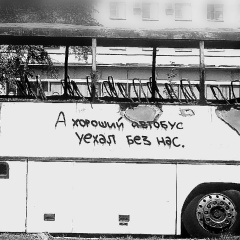 А хороший автобус
уехал без нас.